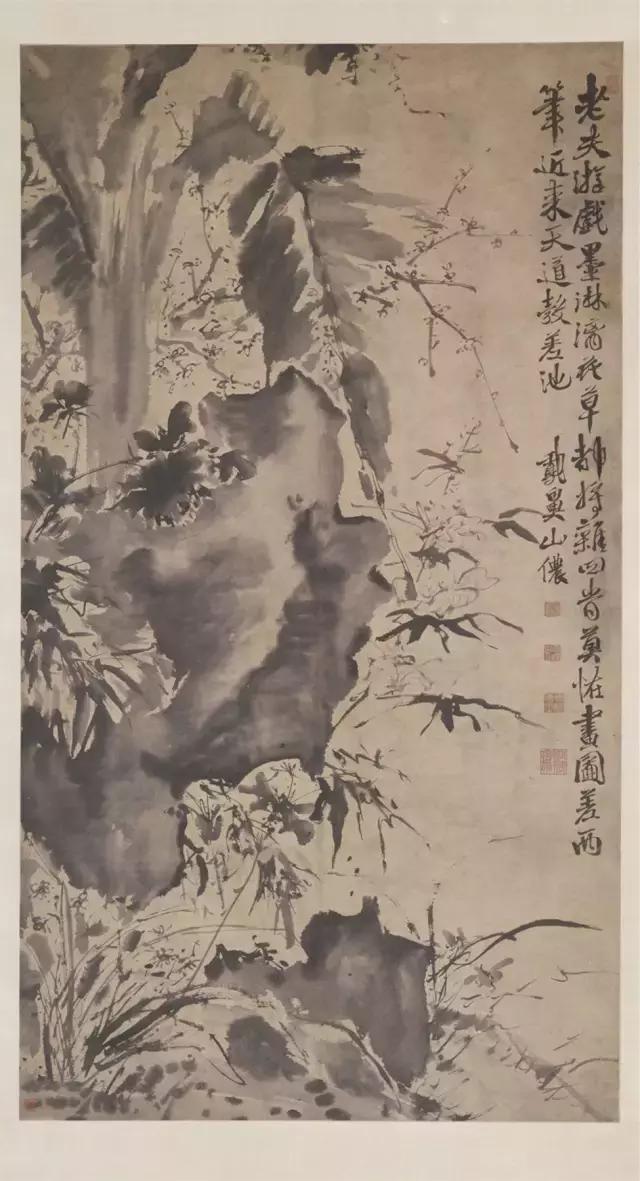 老夫游戲墨淋漓花草都將雜四旹莫怪畫圖差兩
筆近來天道彀差池
山儂